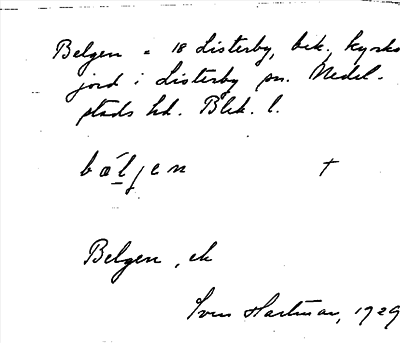 Belgen = 18 Listerby, bik. kyrko
jord i Listerby sn. Medel-
stads hd. Blek. l.
bæ´ljen †
Belgen, ek
Sven Hartman, 1929